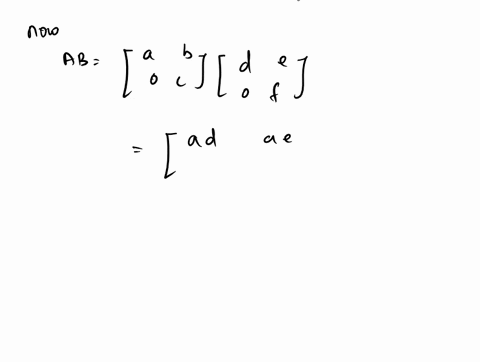 now
AB = [ a b 0 c ] [ d e 0 f ]
= [ ad ae